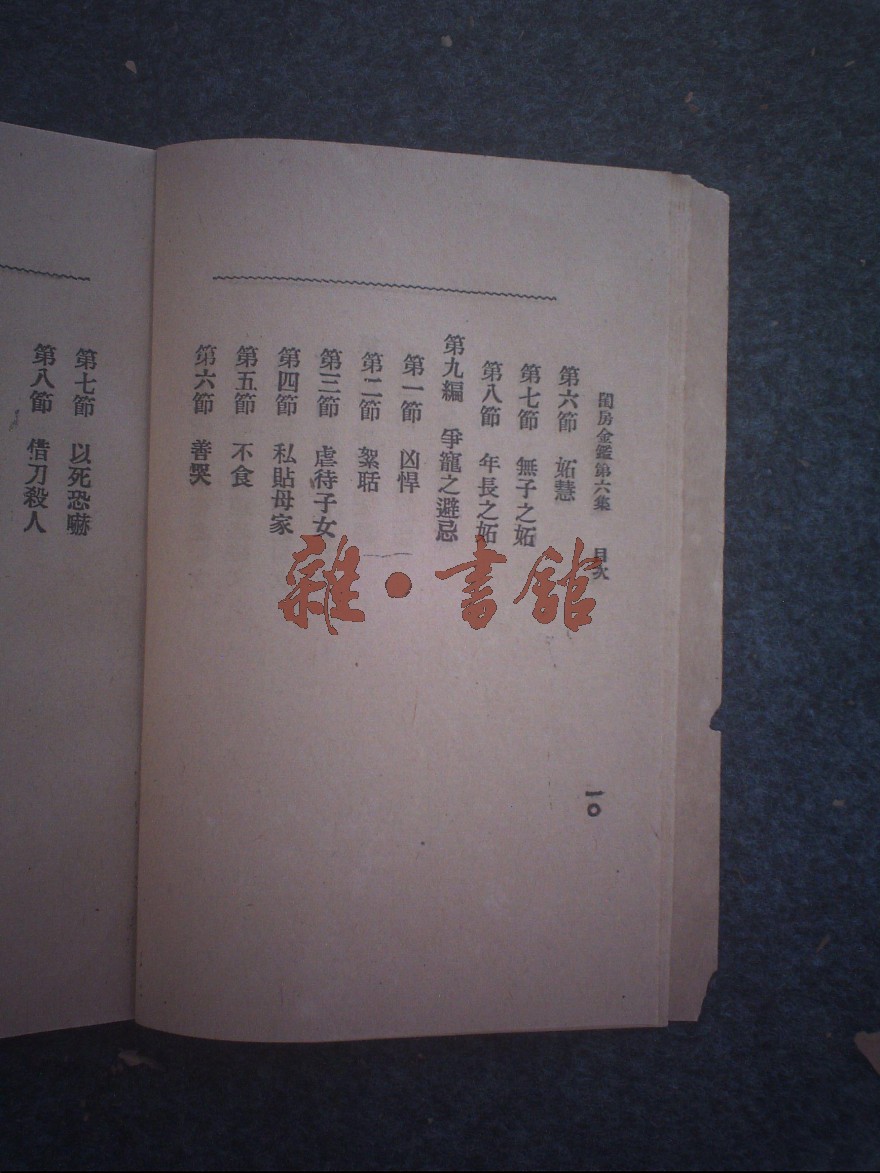 閨房金鑑第六集　目次
一〇
第六節　妬慧
第七節　無子之妬
第八節　年長之妬
第九編　爭寵之避忌
第一節　凶悍
第二節　絮聒
第三節　虐待子女
第四節　私貼母家
第五節　不食
第六節　善哭
第七節　以死恐嚇
第八節　借刀殺人
雜·書館